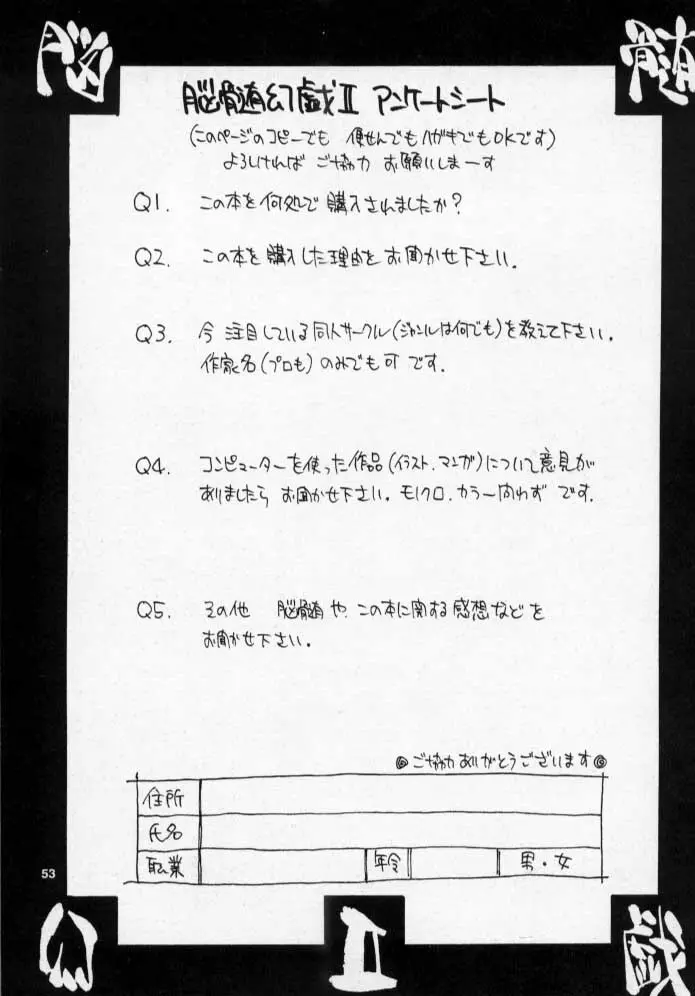 脳
髄
脳髄幻戯Ⅱ アンケートシート
(このページのコピーでも 便せんでもハガキでもOKです)
よろしければ ご協力 お願いしまーす
Q1. この本を何処で購入されましたか?
Q2. この本を購入した理由をお聞かせ下さい.
Q3. 今注目している同人サークル(ジャンルは何でも)を教えて下さい.
作家名(プロも)のみでも可です.
Q4. コンピューターを使った作品(イラスト.マンガ)について意見が
ありましたら お聞かせ下さい. モノクロ.カラー問わず です.
Q5. その他 脳髄や、この本に関する感想などを
お聞かせ下さい.
◎ご協力ありがとうございます◎
住所
氏名
職業 年令 男・女
53
幻 Ⅱ 戯